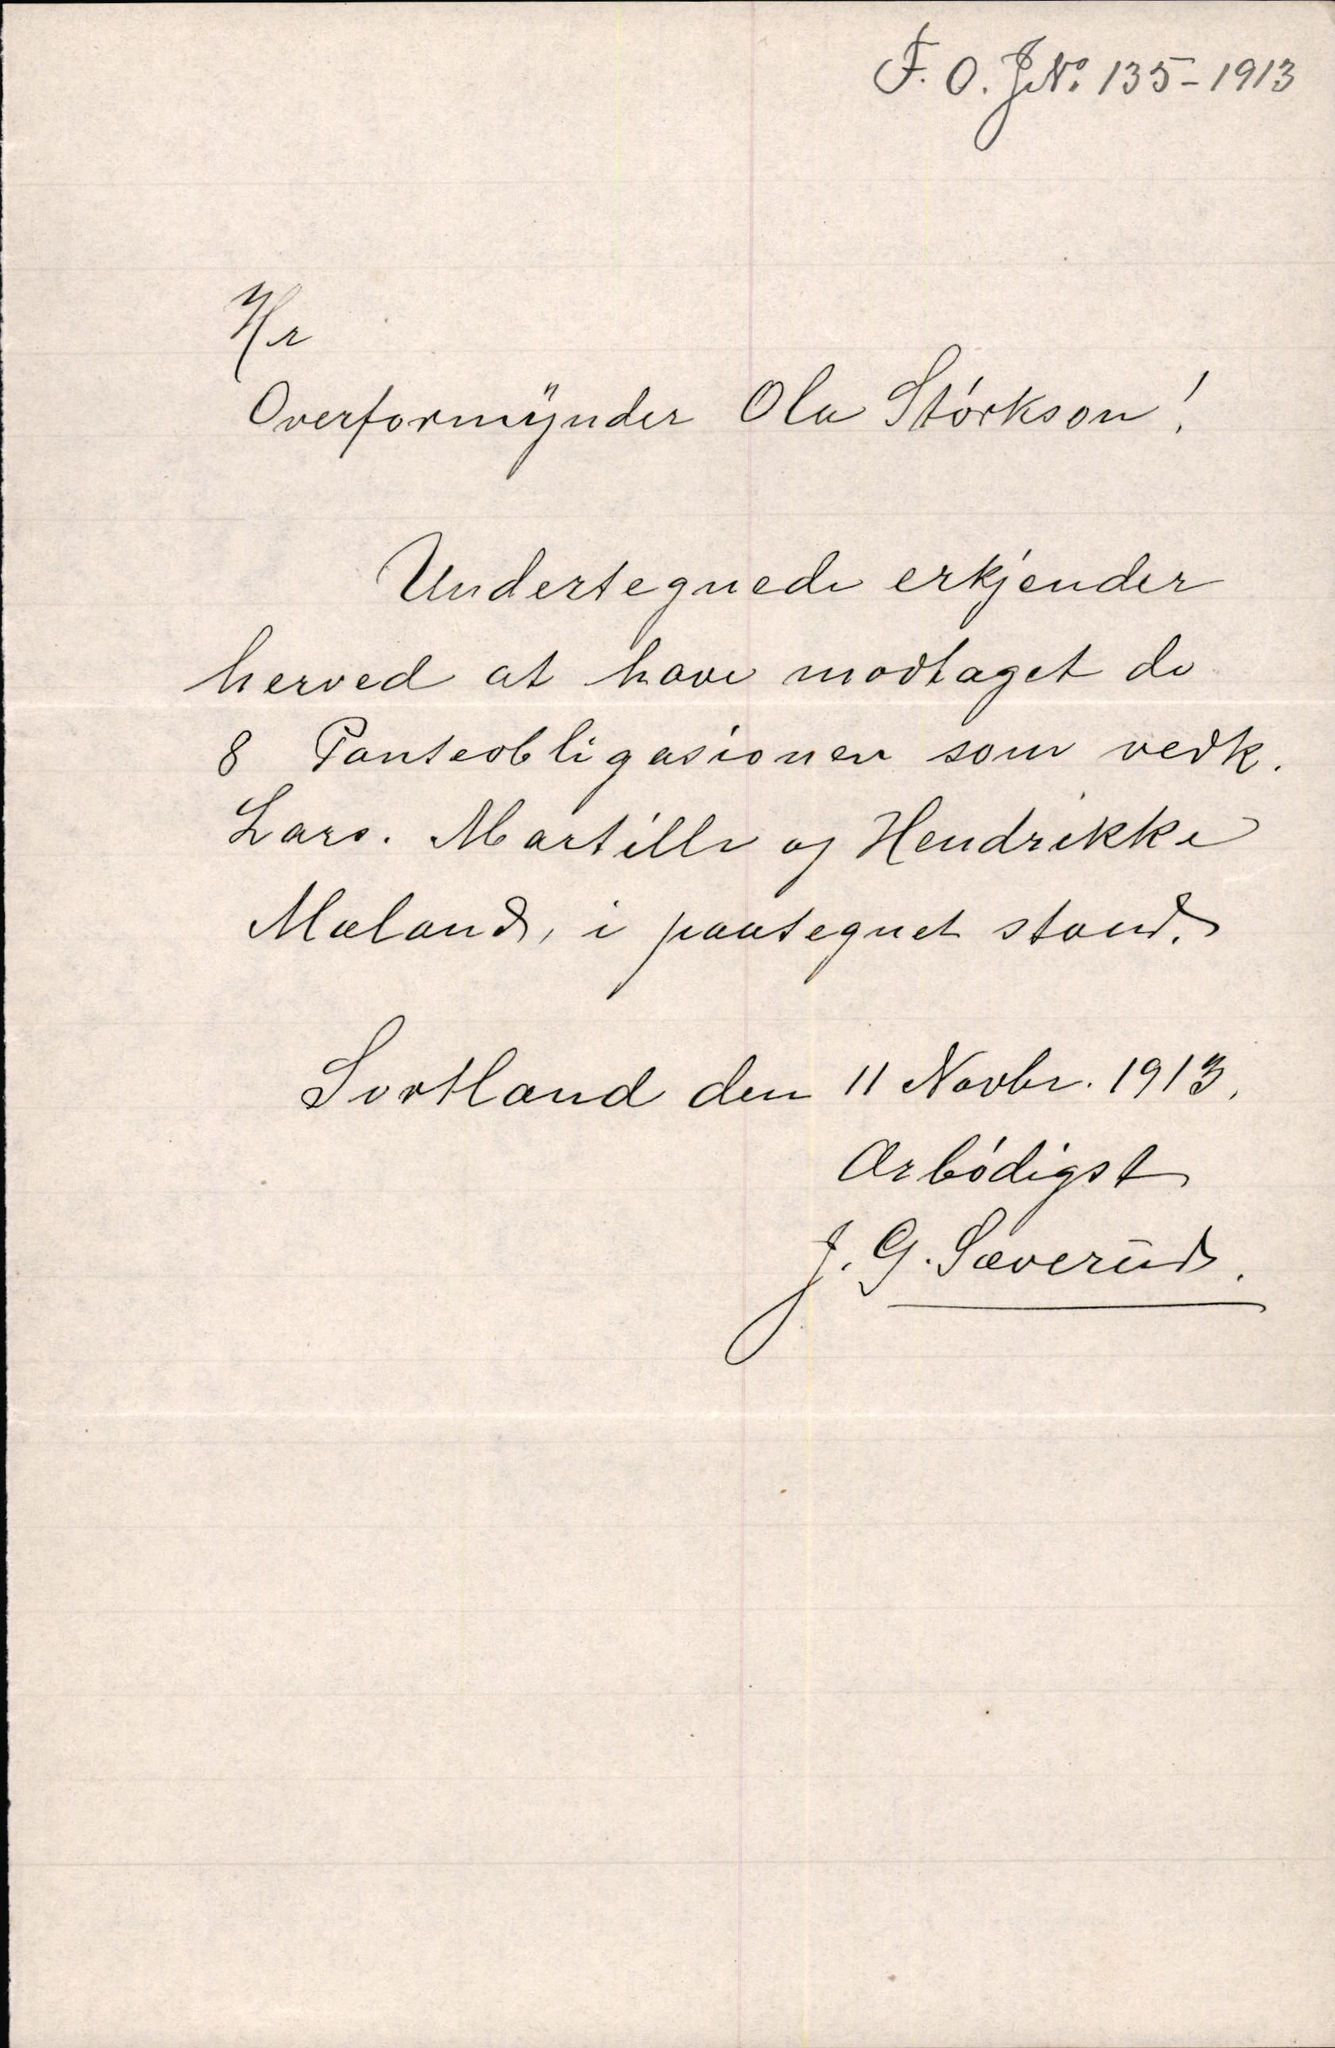 F. O. J. No. 135-1913
Hr
Overformÿnder Ola Störkson!
Undertegnede erkjender
herved at have modtaget de
8 Panteobligasioner som vedk.
Lars. Martille og Hendrikke
Mæland, i paategnet stand.
Sortland den 11 Novbr. 1913.
Ærbödigst
J. G. Sæverud.